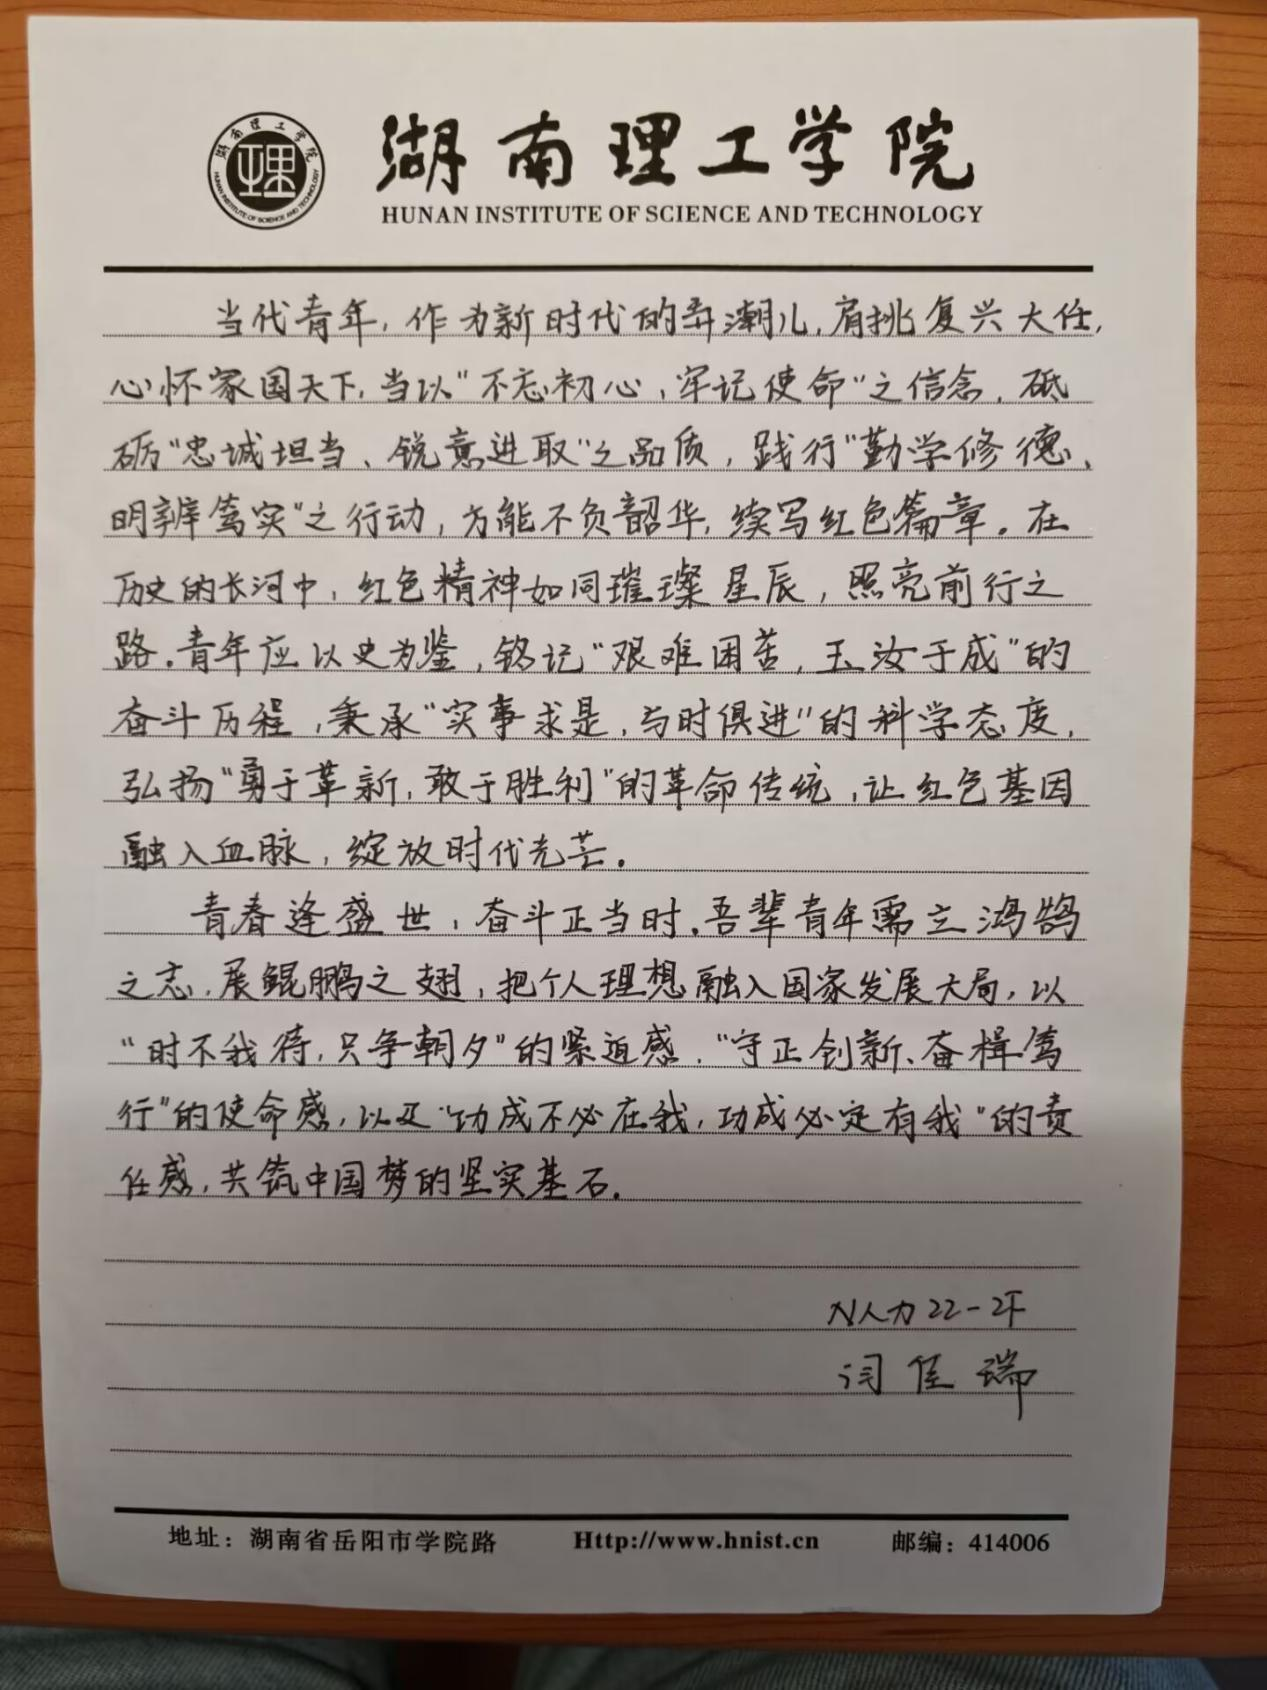 湖南理工学院
HUNAN INSTITUTE OF SCIENCE AND TECHNOLOGY
当代青年,作为新时代的弄潮儿,肩挑复兴大任,
心怀家国天下,当以“不忘初心,牢记使命”之信念,砥
砺“忠诚担当、锐意进取”之品质,践行“勤学修德、
明辨笃实”之行动,方能不负韶华,续写红色篇章。在
历史的长河中,红色精神如同璀璨星辰,照亮前行之
路。青年应以史为鉴,铭记“艰难困苦,玉汝于成”的
奋斗历程,秉承“实事求是,与时俱进”的科学态度,
弘扬“勇于革新,敢于胜利”的革命传统,让红色基因
融入血脉,绽放时代光芒。
青春逢盛世,奋斗正当时。吾辈青年需立鸿鹄
之志,展鲲鹏之翅,把个人理想融入国家发展大局,以
“时不我待,只争朝夕”的紧迫感,“守正创新、奋楫笃
行”的使命感,以及“功成不必在我,功成必定有我”的责
任感,共筑中国梦的坚实基石。
N人力22-2F
闫佳瑞
地址:湖南省岳阳市学院路 Http://www.hnist.cn 邮编:414006